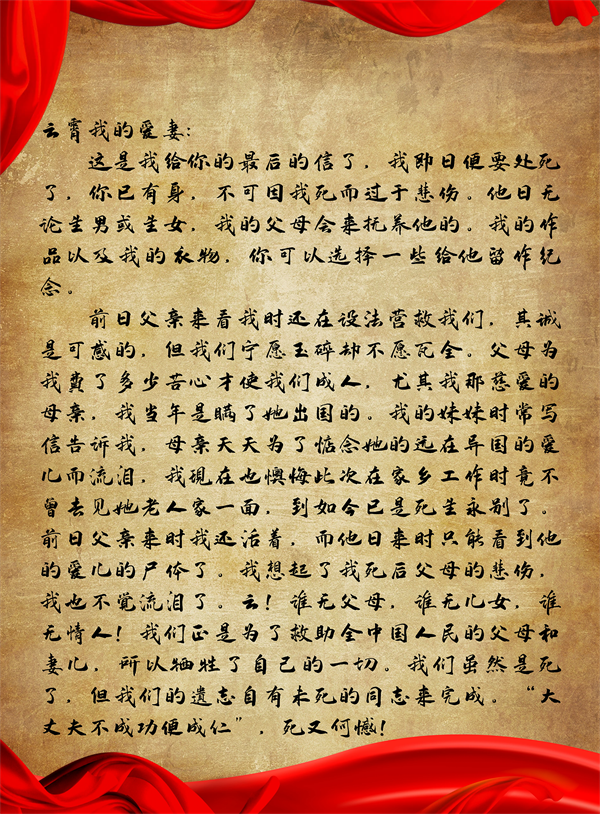 云霄我的爱妻：
这是我给你的最后的信了，我即日便要处死
了，你已有身，不可因我死而过于悲伤。他日无
论生男或生女，我的父母会来抚养他的。我的作
品以及我的衣物，你可以选择一些给他留作纪
念。
前日父亲来看我时还在设法营救我们，其诚
是可感的，但我们宁愿玉碎却不愿瓦全。父母为
我费了多少苦心才使我们成人，尤其我那慈爱的
母亲，我当年是瞒了她出国的。我的妹妹时常写
信告诉我，母亲天天为了惦念她的远在异国的爱
儿而流泪，我现在也懊悔此次在家乡工作时竟不
曾去见她老人家一面，到如今已是死生永别了。
前日父亲来时我还活着，而他日来时只能看到他
的爱儿的尸体了。我想起了我死后父母的悲伤，
我也不觉流泪了。云！谁无父母，谁无儿女，谁
无情人！我们正是为了救助全中国人民的父母和
妻儿，所以牺牲了自己的一切。我们虽然是死
了，但我们的遗志自有未死的同志来完成。“大
丈夫不成功便成仁”，死又何憾！